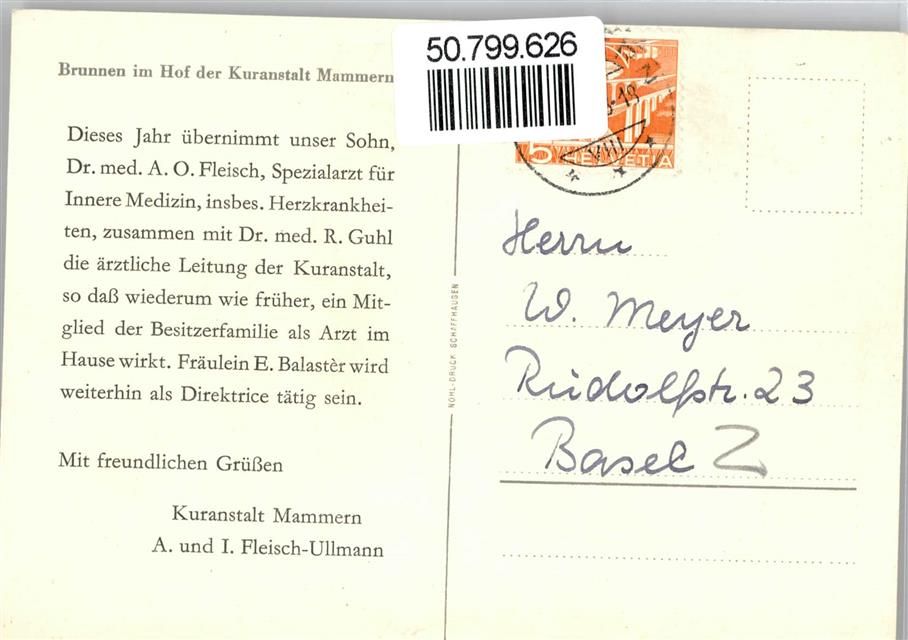 50.799.626
Brunnen im Hof der Kuranstalt Mammern
Dieses Jahr übernimmt unser Sohn,
Dr. med. A. O. Fleisch, Spezialarzt für
Innere Medizin, insbes. Herzkrankhei-
ten, zusammen mit Dr. med. R. Guhl
die ärztliche Leitung der Kuranstalt,
so daß wiederum wie früher, ein Mit-
glied der Besitzerfamilie als Arzt im
Hause wirkt. Fräulein E. Balastèr wird
weiterhin als Direktrice tätig sein.
Mit freundlichen Grüßen
Kuranstalt Mammern
A. und I. Fleisch-Ullmann
NOHL-DRUCK SCHAFFHAUSEN
5 HELVETIA
VIII
Herrn
W. Meyer
Rudolfstr. 23
Basel 2